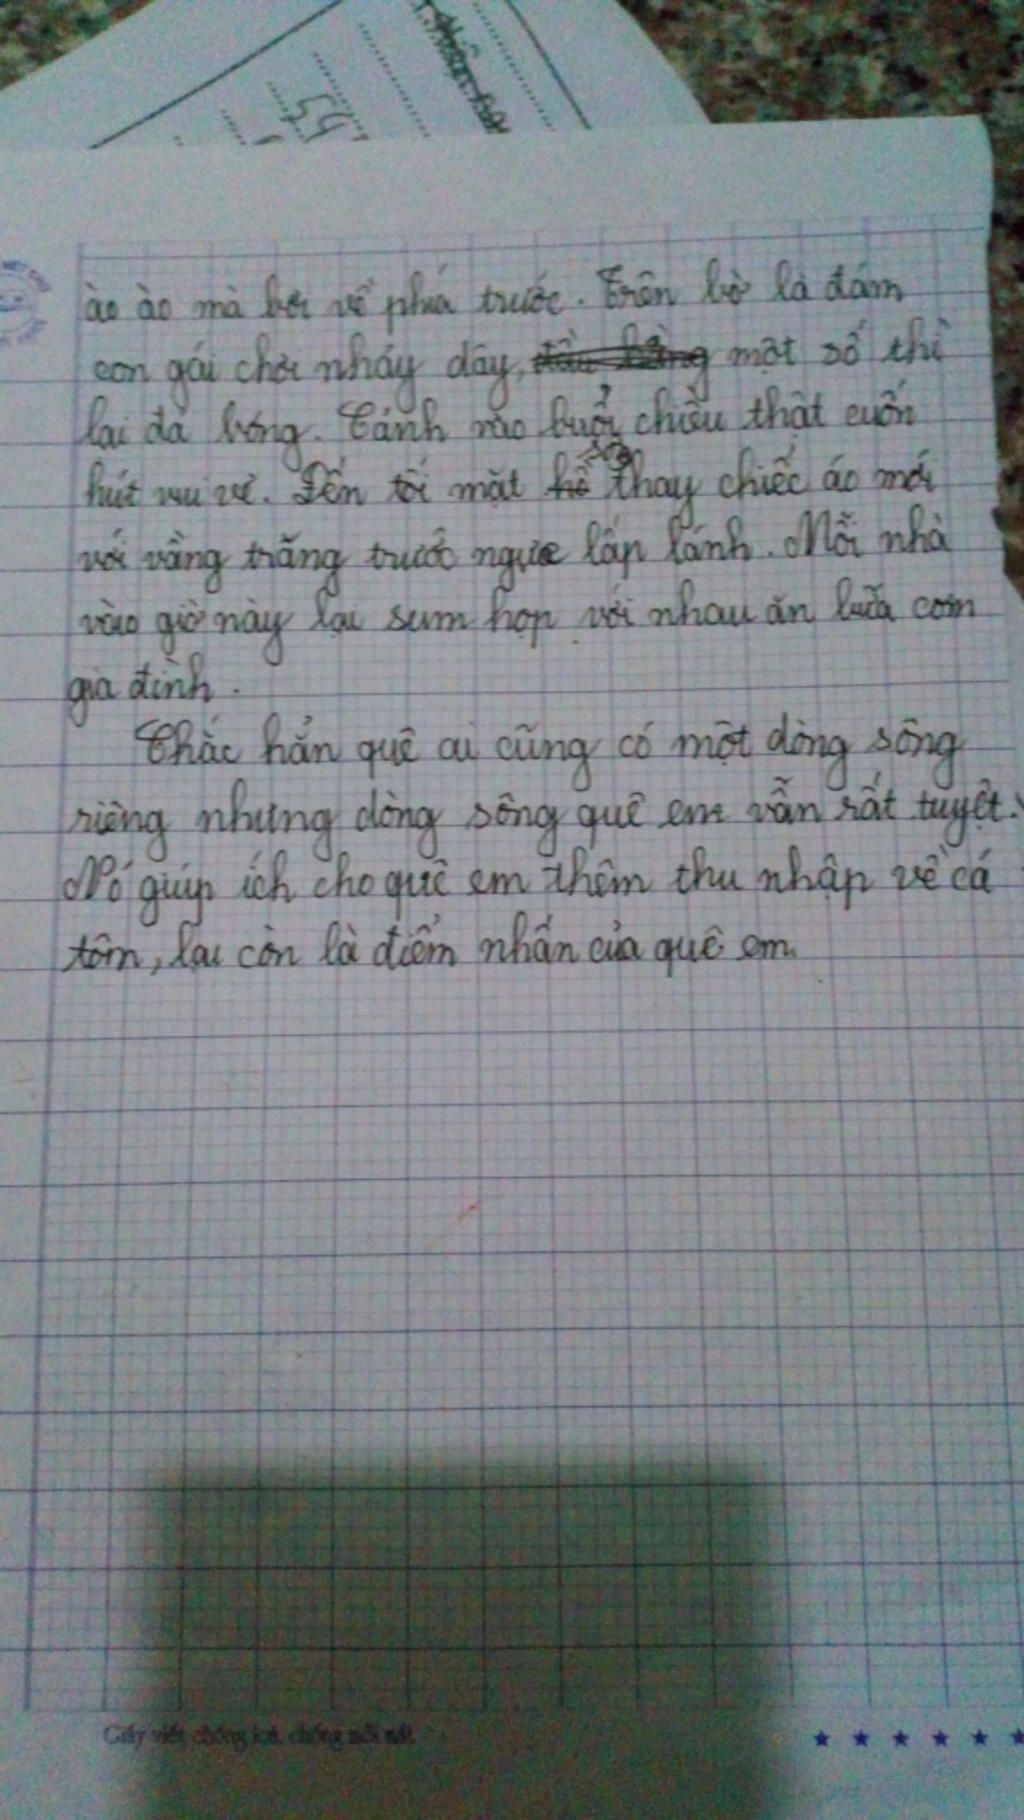 55
ào ào mà bơi về phía trước. Trên bờ là đám
con gái chơi nhảy dây, một số thì
lại đá bóng. Cảnh vào buổi chiều thật cuốn
hút vui vẻ. Đến tối mặt sông thay chiếc áo mới
với vầng trăng trước ngực lấp lánh. Mỗi nhà
vào giờ này lại sum họp với nhau ăn bữa cơm
gia đình.
Chắc hẳn quê ai cũng có một dòng sông
riêng nhưng dòng sông quê em vẫn rất tuyệt.
Nó giúp ích cho quê em thêm thu nhập về cá
tôm, lại còn là điểm nhấn của quê em.
Giấy viết chống loá, chống mỏi mắt